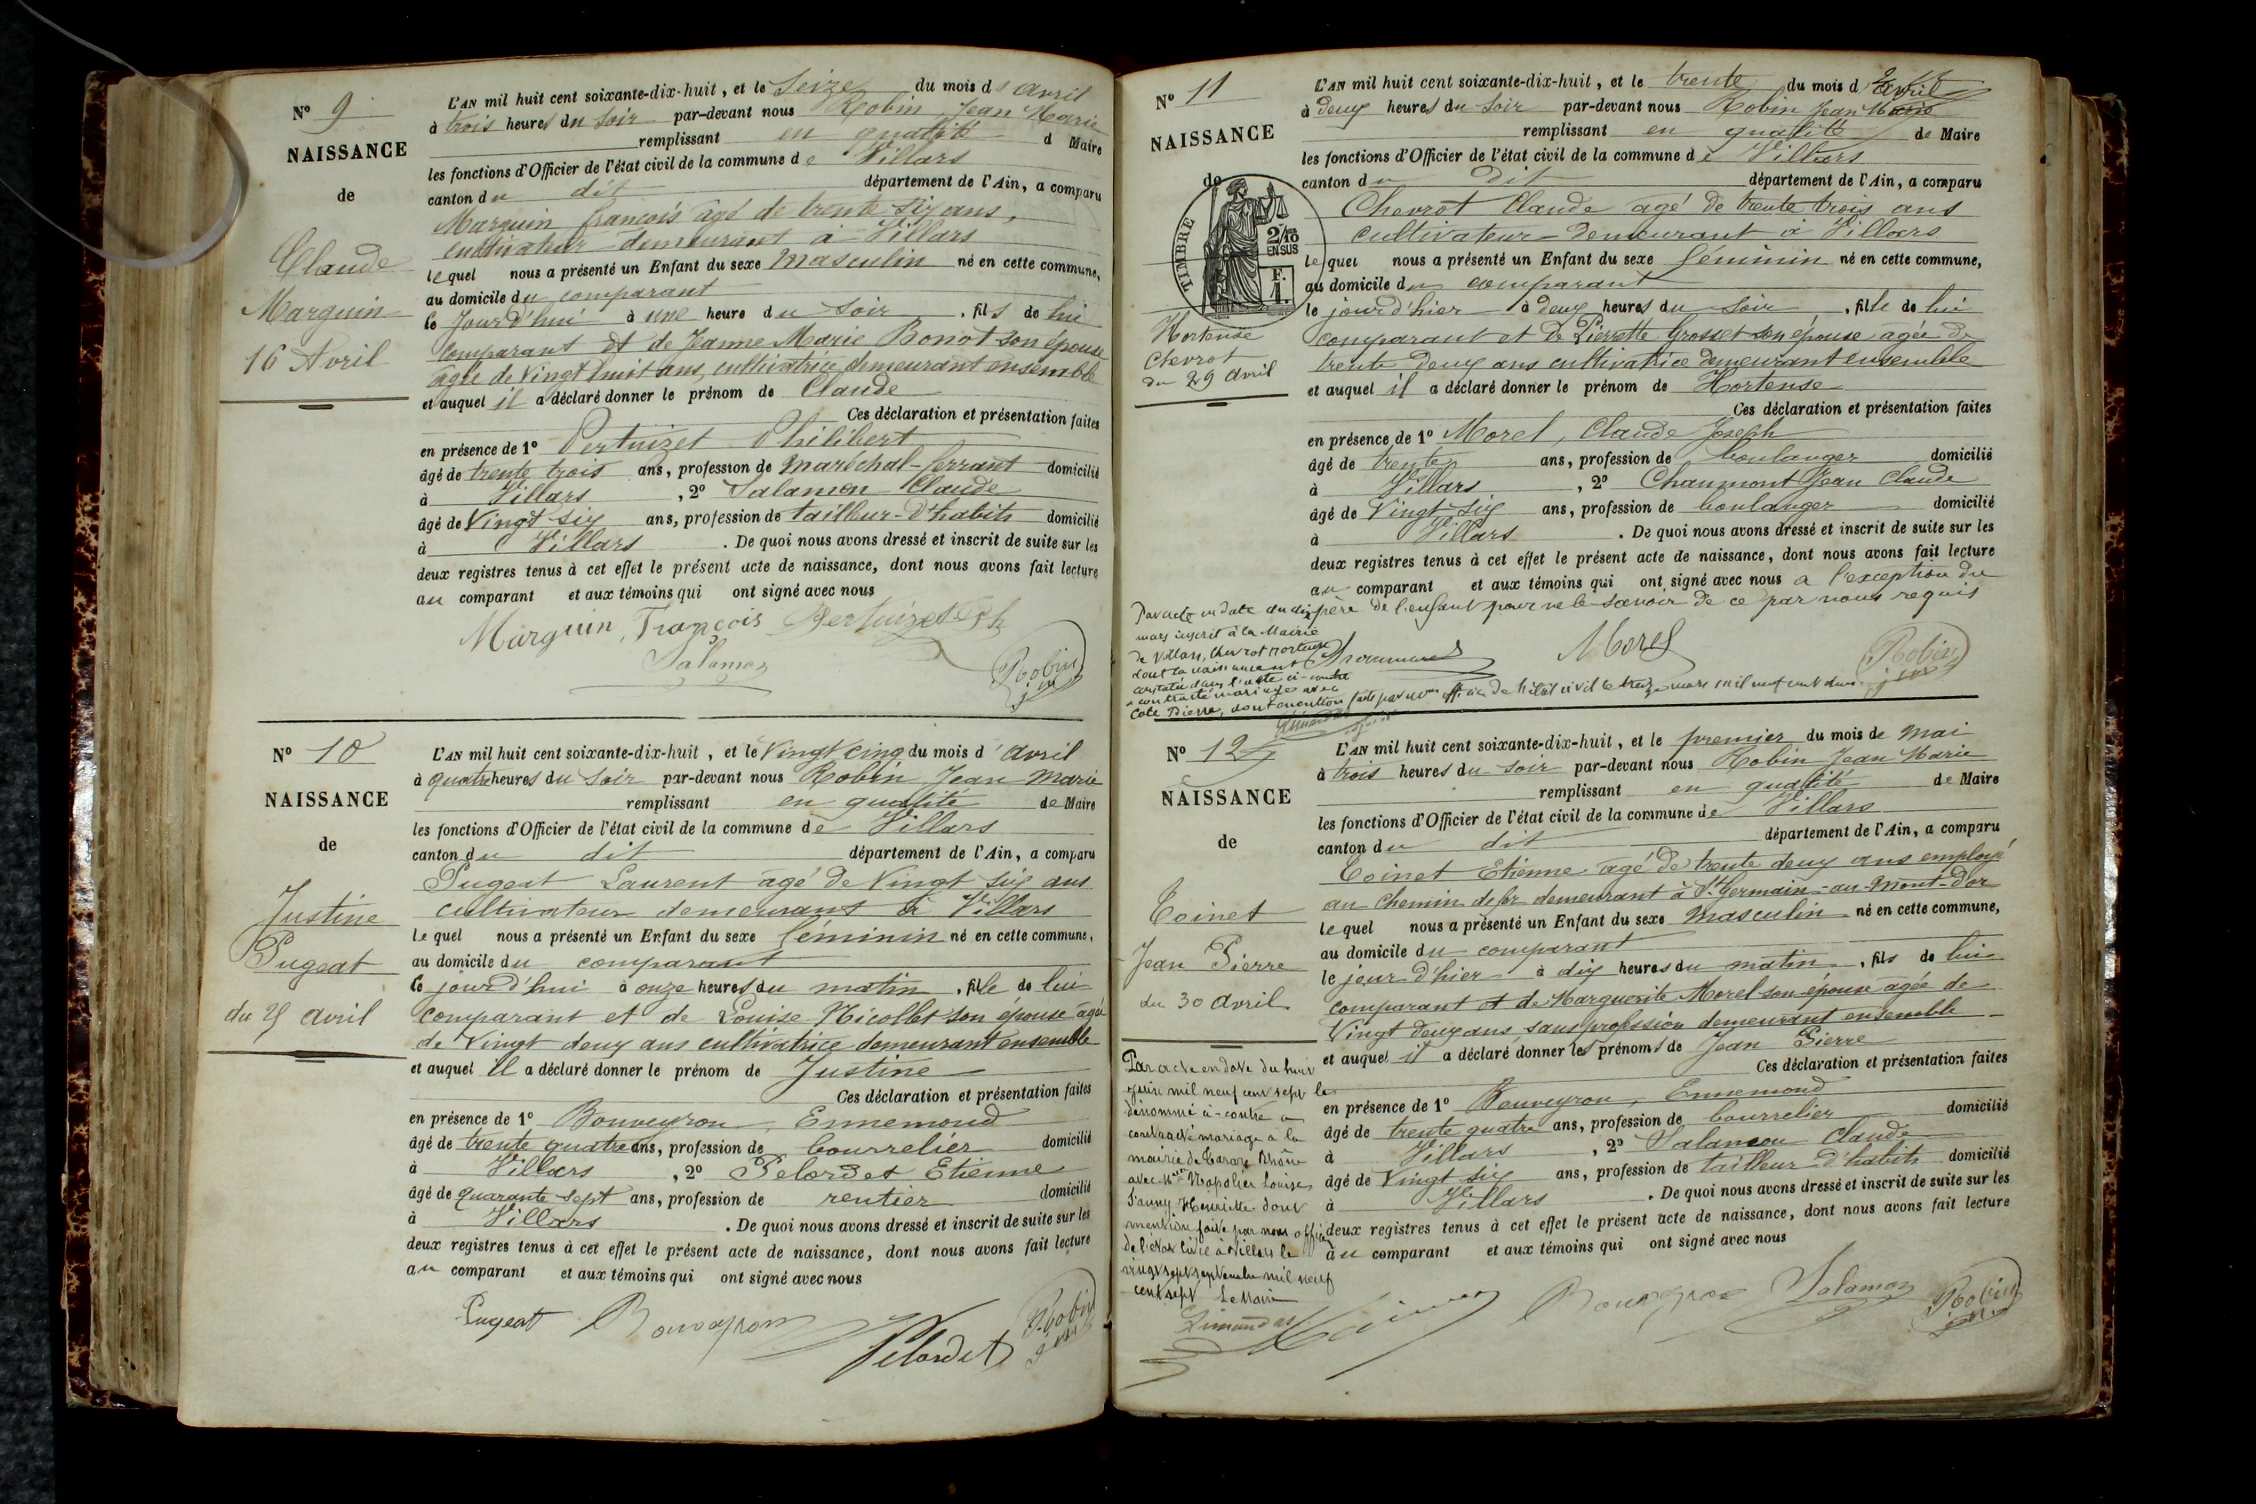 N° 9
NAISSANCE
de
Claude
Marguin
16 Avril
L'AN mil huit cent soixante-dix-huit, et le Seize du mois d'avril
à trois heures du soir par-devant nous Robin Jean Marie
remplissant en qualité d Maire
les fonctions d'Officier de l'état civil de la commune de Villars
canton du dit département de l'Ain, a comparu
Marguin françois âgé de trente six ans,
cultivateur demeurant à Villars
lequel nous a présenté un Enfant du sexe masculin né en cette commune,
au domicile du comparant
le jourd'hui à une heure du soir, fils de lui
comparant et de Jeanne Marie Bonot son épouse
agée de Vingt huit ans, cultivatrice demeurant ensemble
et auquel il a déclaré donner le prénom de Claude
Ces déclaration et présentation faites
en présence de 1° Pertuizet Philibert
âgé de trente trois ans, profession de maréchal-ferrant domicilié
à Villars, 2° Salamon Claude
âgé de Vingt six ans, profession de tailleur-d'habits domicilié
à Villars. De quoi nous avons dressé et inscrit de suite sur les
deux registres tenus à cet effet le présent acte de naissance, dont nous avons fait lecture
au comparant et aux témoins qui ont signé avec nous
Marguin, François Pertuizet Ph
Salamon
Robin
N° 10
NAISSANCE
de
Justine
Pugeat
du 25 avril
L'AN mil huit cent soixante-dix-huit, et le Vingt cinq du mois d'avril
à quatre heures du soir par-devant nous Robin Jean Marie
remplissant en qualité de Maire
les fonctions d'Officier de l'état civil de la commune de Villars
canton du dit département de l'Ain, a comparu
Pugeat Laurent agé de Vingt six ans
cultivateur demeurant à Villars
Le quel nous a présenté un Enfant du sexe féminin né en cette commune,
au domicile du comparant
le jourd'hui à onze heures du matin, fille de lui
comparant et de Louise Nicollet son épouse agée
de Vingt deux ans cultivatrice demeurant ensemble
et auquel il a déclaré donner le prénom de Justine
Ces déclaration et présentation faites
en présence de 1° Bouveyron, Ennemond
âgé de trente quatre ans, profession de bourrelier domicilié
à Villars, 2° Pelordet Etienne
âgé de quarante sept ans, profession de rentier domicilié
à Villars. De quoi nous avons dressé et inscrit de suite sur les
deux registres tenus à cet effet le présent acte de naissance, dont nous avons fait lecture
au comparant et aux témoins qui ont signé avec nous
Pugeat Bouveyron Pelordet Robin
N° 11
NAISSANCE
de
TIMBRE
2/10
EN SUS
F.
1.
Hortense
Chevrot
du 29 avril
L'AN mil huit cent soixante-dix-huit, et le trente du mois d'avril
à deux heures du soir par-devant nous Robin Jean Marie
remplissant en qualité de Maire
les fonctions d'Officier de l'état civil de la commune de Villars
canton du dit département de l'Ain, a comparu
Chevrot Claude agé de trente trois ans
cultivateur demeurant à Villars
lequel nous a présenté un Enfant du sexe féminin né en cette commune,
au domicile du comparant
le jour d'hier à deux heures du soir, fille de lui
comparant et de Pierrette Grosset son épouse agée de
trente deux ans cultivatrice demeurant ensemble
et auquel il a déclaré donner le prénom de Hortense
Ces déclaration et présentation faites
en présence de 1° Morel, Claude Joseph
âgé de trente ans, profession de boulanger domicilié
à Villars, 2° Chaumont Jean Claude
âgé de Vingt six ans, profession de boulanger domicilié
à Villars. De quoi nous avons dressé et inscrit de suite sur les
deux registres tenus à cet effet le présent acte de naissance, dont nous avons fait lecture
au comparant et aux témoins qui ont signé avec nous a l'exception du
père de l'enfant pour ne le savoir de ce par nous requis
Morel Robin
Par acte en date du dix
mars inscrit à la Mairie
de Villars, Chevrot Hortense
dont la naissance est
constatée dans l'acte ci-contre
a contracté mariage avec
Cote Pierre, dont mention faite par nous officier de l'état civil le treize mars mil neuf cent deux
N° 12
NAISSANCE
de
Coinet
Jean Pierre
du 30 avril
L'AN mil huit cent soixante-dix-huit, et le premier du mois de mai
à trois heures du soir par-devant nous Robin Jean Marie
remplissant en qualité de Maire
les fonctions d'Officier de l'état civil de la commune de Villars
canton du dit département de l'Ain, a comparu
Coinet Etienne agé de trente deux ans employé
au chemin de fer demeurant à St Germain-au-Mont-d'or
le quel nous a présenté un Enfant du sexe masculin né en cette commune,
au domicile du comparant
le jour d'hier à dix heures du matin, fils de lui
comparant et de Marguerite Morel son épouse agée de
Vingt deux ans, sans profession demeurant ensemble
et auquel il a déclaré donner les prénoms de Jean Pierre
Ces déclaration et présentation faites
en présence de 1° Bouveyron, Ennemond
âgé de trente quatre ans, profession de bourrelier domicilié
à Villars, 2° Salamon Claude
âgé de Vingt six ans, profession de tailleur d'habits domicilié
à Villars. De quoi nous avons dressé et inscrit de suite sur les
deux registres tenus à cet effet le présent acte de naissance, dont nous avons fait lecture
au comparant et aux témoins qui ont signé avec nous
Par acte en date du huit
juin mil neuf cent sept le
dénommé ci-contre a
contracté mariage à la
mairie de Tarare Rhône
avec Napolier Louise
Fanny Henriette dont
mention faite par nous officier
de l'état civil à Villars le
vingt sept septembre mil neuf
cent sept Le Maire
Coinet Bouveyron Salamon Robin